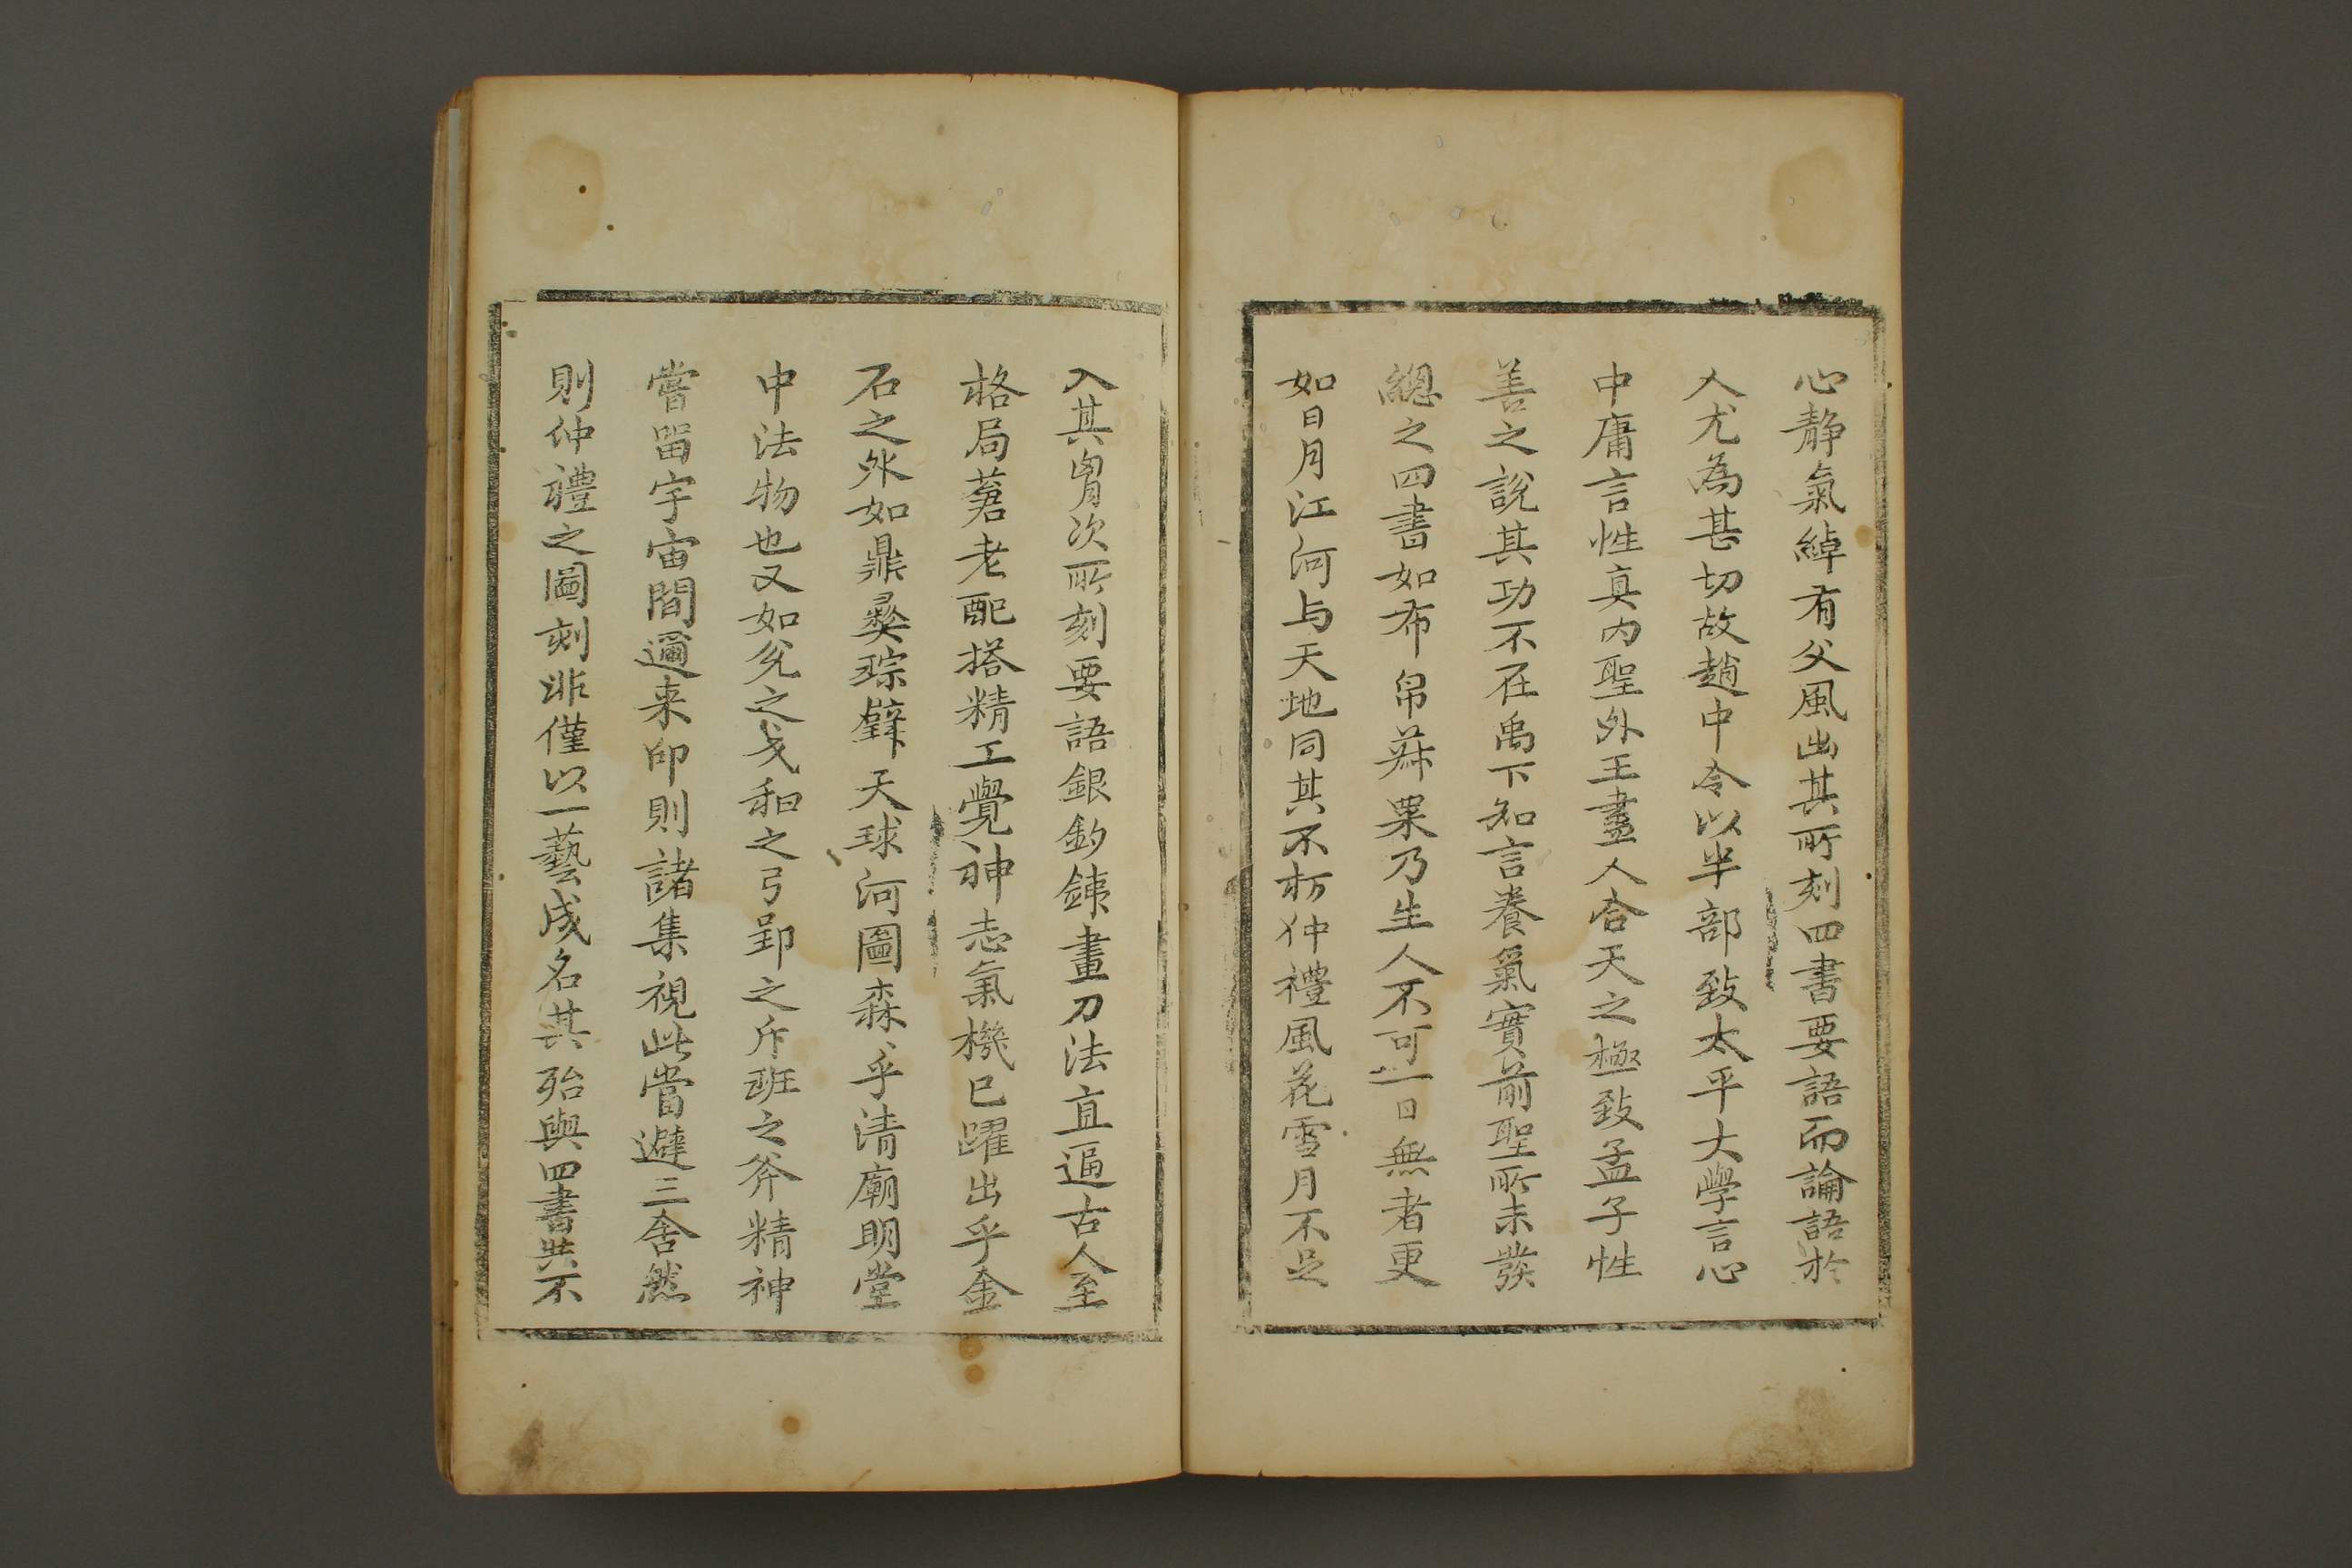 心静氣綽有父風出其所刻四書要語而論語於
人尤為甚切故趙中令以半部致太平大學言心
中庸言性真内聖外王盡人合天之極致孟子性
善之說其功不在禹下知言養氣實前聖所未發
總之四書如布帛菽粟乃生人不可一日無者更
如日月江河与天地同其不朽仲禮風花雪月不足
入其胷次所刻要語銀鈎銕畫刀法直逼古人至
格局蒼老配搭精工覺神志氣機已躍出乎金
石之外如鼎彝琮璧天球河圖森乎清廟明堂
中法物也又如兊之戈和之弓郢之斥班之斧精神
嘗留宇宙間邇来印則諸集視此當避三舍然
則仲禮之圖刻非僅以一藝成名其殆與四書共不